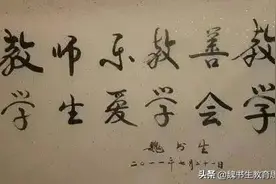 教师乐教善教
学生爱学会学
魏书生
二〇一一年七月二十一日
头条 @魏书生教育